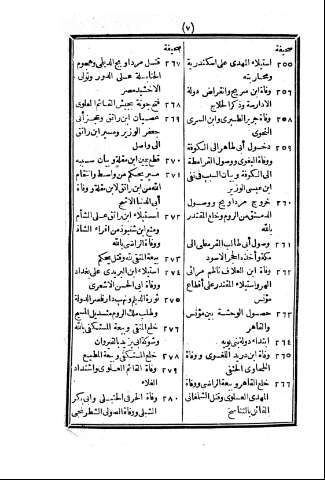 (٧)
صحيفة
٢٥٥ استيلاء المهدى على اسكندرية
ومحاربته
٢٥٦ وفاة ابن سريج وانقراض دولة
الادارسة وذكر الحلاج
٢٥٨ وفاة جرير الطبرى وابن السرى
النحوى
٢٥٩ دخول أبى طاهر الى الكوفة
ووفاة البغوى ووصول القرامطة
الى الكوفة وبيان السبب فى
ابن عيسى الوزير
٢٦٠ خروج مرداويج ووصول
الدمستق من الروم وخلع المقتدر
بالله
٢٦١ وصول أبى طالب القرمطى الى
مكة وأخذه الحجر الاسود
٢٦٢ وفاة ابن العلاف ناظم مراثى
الهر واستيلاء المقتدر على أقطاع
مؤنس
٢٦٣ حصول الوحشة بين مؤنس
والقاهر
٢٦٤ ابتداء دولة بنى بويه
٢٦٥ وفاة ابن دريد اللغوى ووفاة
الطحاوى الحنفى
٢٦٦ خلع القاهر وبيعة الراضى ووفاة
المهدى العلوى وقتل الشلمغانى
القائل بالتناسخ
صحيفة
٢٦٧ قتل مرداويج الديلمى وهجوم
الحنابلة على الدور وتولى
الاخشيد مصر
٢٦٨ فتح جنوة بجيش القائم العلوى
٢٦٩ عصيان ابن رائق وعجز أبى
جعفر الوزير ومسير ابن رائق
الى واصل
٢٧٠ قطع يد ابن مقلة وبيان سببه
٢٧١ مسير بجكم من واسط وانتقام
الله من ابن رائق لابن مقلة ووفاة
أبى الدنيا الاشج
٢٧٢ استيلاء ابن رائق على الشأم
ومنع ابن شنبوذ من اقراء الشاذ
ووفاة الراضى بالله
٢٧٣ بيعة المتقى لله وقتل بجكم
٢٧٤ استيلاء ابن البريدى على بغداد
ووفاة أبى الحسن الاشعرى
٢٧٥ ثورة الديلم ونهب دار قصر الدولة
وطلب ملك الروم منديل المسيح
٢٧٦ خلع المتقى وبيعة المستكفى بالله
وشوكة أبى يزيد بالقيروان
٢٧٨ خلع المستكفى وبيعة المطيع
٢٧٩ وفاة القائم العلوى واشتداد
الغلاء
٢٨٠ وفاة الخرقى الحنبلى وأبى بكر
الشبلى ووفاة الصولى الشطرنجى